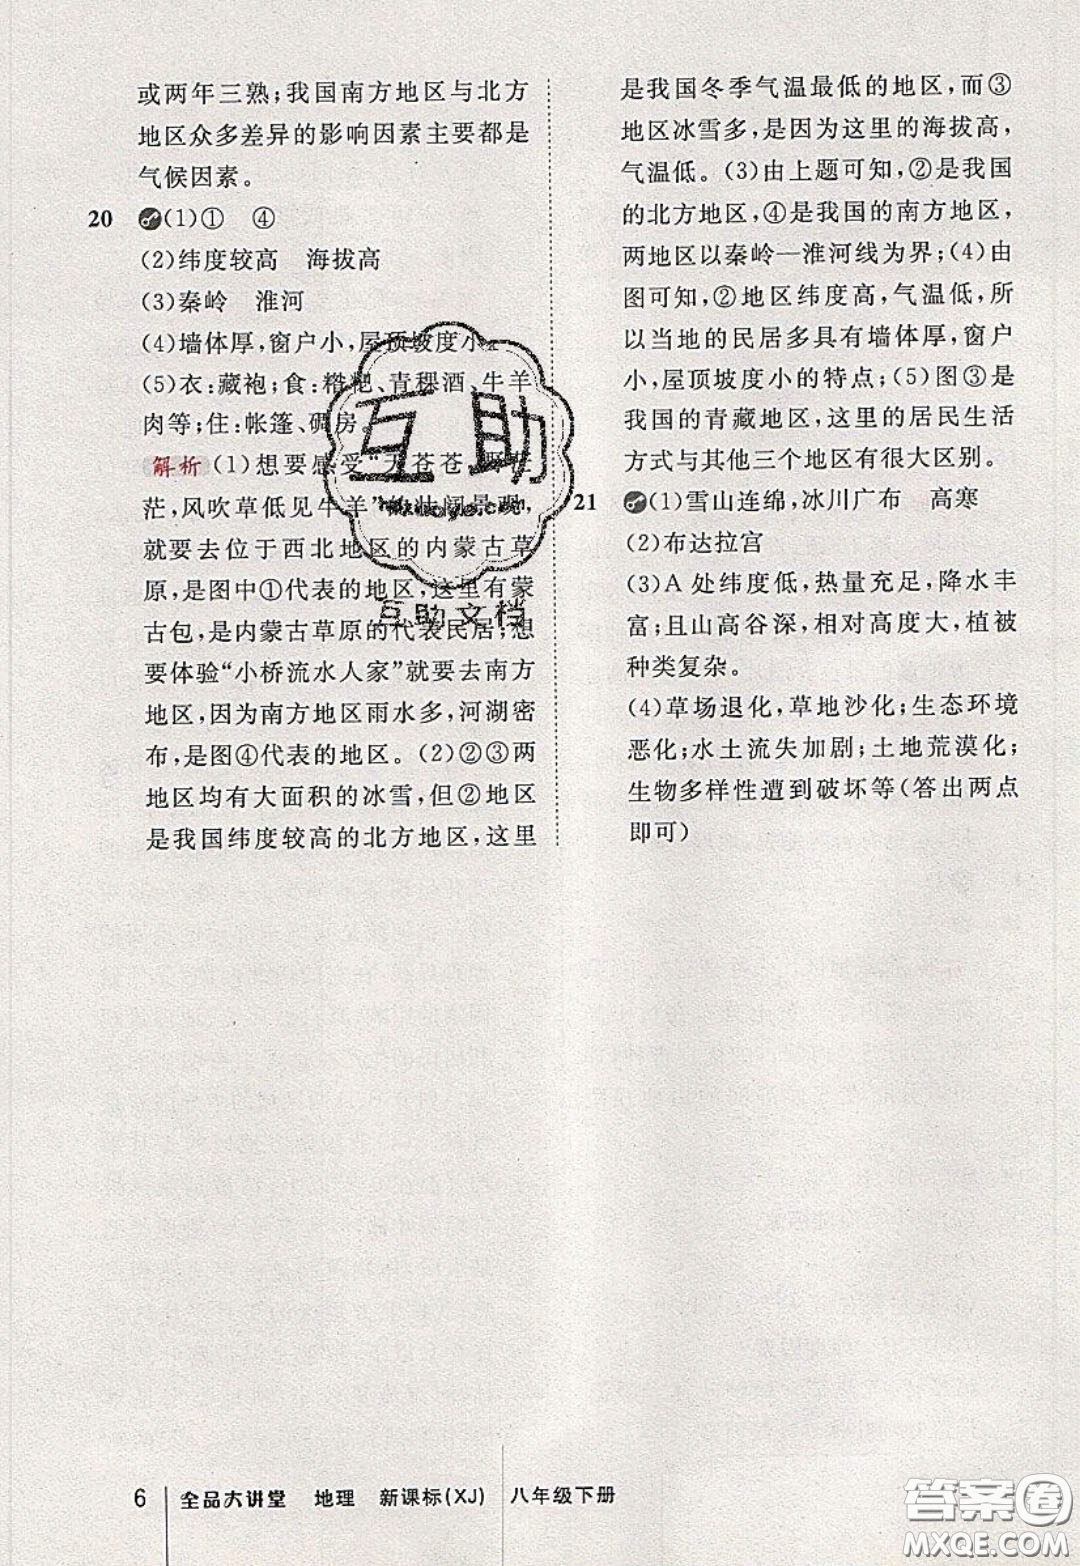 或两年三熟;我国南方地区与北方
地区众多差异的影响因素主要都是
气候因素。
20 (1)① ④
(2)纬度较高 海拔高
(3)秦岭 淮河
(4)墙体厚,窗户小,屋顶坡度小
(5)衣:藏袍;食:糌粑、青稞酒、牛羊
肉等;住:帐篷、碉房。
解析 (1)想要感受“天苍苍,野茫
茫,风吹草低见牛羊”的壮阔景观,
就要去位于西北地区的内蒙古草
原,是图中①代表的地区,这里有蒙
古包,是内蒙古草原的代表民居;想
要体验“小桥流水人家”就要去南方
地区,因为南方地区雨水多,河湖密
布,是图④代表的地区。(2)②③两
地区均有大面积的冰雪,但②地区
是我国纬度较高的北方地区,这里
是我国冬季气温最低的地区,而③
地区冰雪多,是因为这里的海拔高,
气温低。(3)由上题可知,②是我国
的北方地区,④是我国的南方地区,
两地区以秦岭—淮河线为界;(4)由
图可知,②地区纬度高,气温低,所
以当地的民居多具有墙体厚,窗户
小,屋顶坡度小的特点;(5)图③是
我国的青藏地区,这里的居民生活
方式与其他三个地区有很大区别。
21 (1)雪山连绵,冰川广布 高寒
(2)布达拉宫
(3)A 处纬度低,热量充足,降水丰
富;且山高谷深,相对高度大,植被
种类复杂。
(4)草场退化,草地沙化;生态环境
恶化;水土流失加剧;土地荒漠化;
生物多样性遭到破坏等(答出两点
即可)
互助
互助文档
6 全品大讲堂 地理 新课标(XJ) 八年级下册
答案圈
MXQE.COM